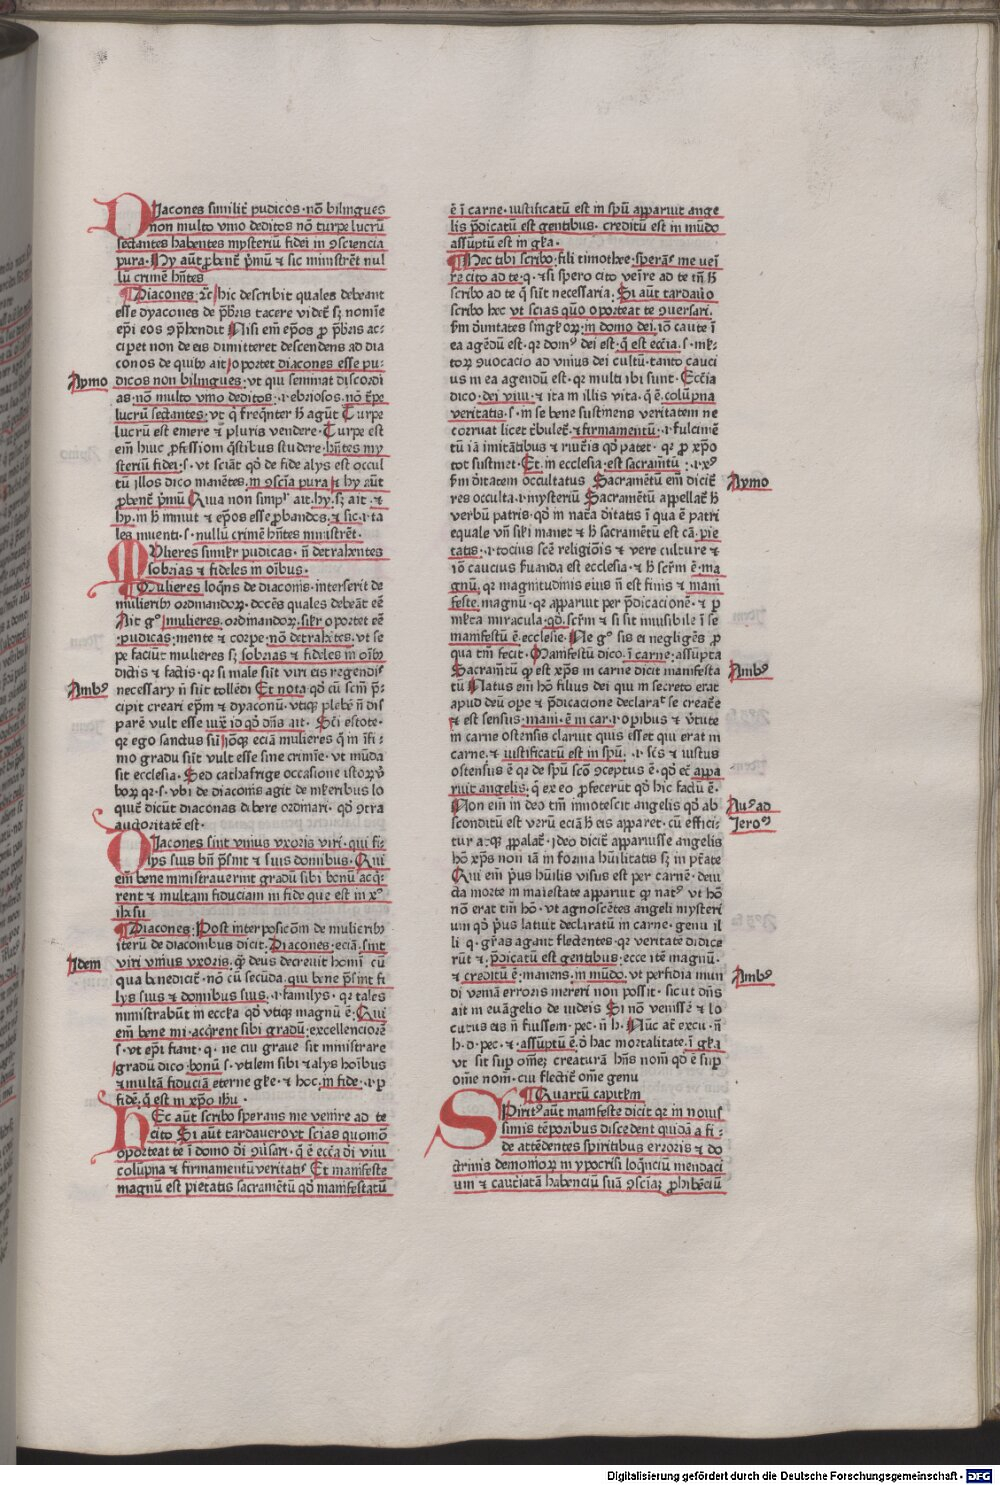 Diacones similit̄ pudicos · nō bilingues
non multo vino deditos nō turpe lucrū
sectantes habentes mysteriū fidei in ꝯsciencia
pura · Hy aūt ꝓbent̄ p̄mū ⁊ sic ministrēt nul
lū crimē hn̄tes
Diacones · ⁊c̄ hic describit quales debeant
esse dyacones de p̄bris tacere videt̄ sꝫ nomīe
ep̄i eos ꝯp̄hendit Nisi em̄ ep̄os ꝓ p̄bris ac-
cipet non de eis dimitteret descendens ad dia
conos de quibꝰ ait oportet diacones esse pu-
Aymo
dicos non bilingues · vt qui seminat discordi
as · nō multo vino deditos · i · ebriosos · nō t̄pe
lucrū sectantes · vt q̄ freq̄nter h̄ agūt Turpe
lucrū est emere ⁊ pluris vendere · Turpe est
em̄ huic ꝓfessioni q̄stibus studere · hn̄tes my
steriū fidei · s · vt sciāt qd̄ de fide alys est occul
tū illos dico manētes · in ꝯscia pura ⁊ hy aūt
ꝓbent̄ p̄mū Quia non simplʳ ait · hy · sꝫ ait · ⁊
hy · in h̄ innuit ⁊ ep̄os esse ꝓbandos · ⁊ sic · i · ta
les inuenti · s · nullū crimē hn̄tes ministrēt ·
Mulieres simĺr pudicas · n̄ detrahentes
sobrias ⁊ fideles in oībus ·
Mulieres loq̄ns de diaconis · interserit de
mulieribꝰ ordinandoꝝ · docēs quales debeāt eē
Ait gͦ mulieres · ordinandoꝝ · siĺr oportet eē
· pudicas · mente ⁊ corpe · nō detrahētes · vt se
pe faciūt mulieres sꝫ sobrias ⁊ fideles in oībꝰ
dictis ⁊ factis · qꝛ si male siīt viri eis regendiˢ
Ambꝰ
necessary n̄ siīt tollēdi Et nota qd̄ cū scm̄ p̄-
cipit creari ep̄m ⁊ dyaconū · vtiqꝫ plebē n̄ dis
parē vult esse iuxͭ id qd̄ dn̄s ait · Sc̄i estote ·
qꝛ ego sanctus sū īoꝫ eciā mulieres q̄ in īfi-
mo gradu siīt vult esse sine crimīe · vt mūda
sit ecclesia · Sed cathafrige occasione istoꝝ v̄
boꝝ qꝛ · s · vbi de diaconis agit de mĺieribus lo
quit̄ dicūt diaconas dībere ordinari · qd̄ ꝯtra
auctoritatē est ·
Diacones sint vnius vxoris viri · qui fi-
lys suis bn̄ p̄sint ⁊ suis domibus · Qui
em̄ bene ministrauerint gradū sibi bonū acq̄
rent ⁊ multam fiduciam in fide que est in xͦ
ih̄su
Diacones · Post interposicōm de mulieribꝰ
iterū de diaconibus dicit · Diacones · eciā · sint
Idem
viri vnius vxoris · qꝫ deus decreuit homī cū
qua benedicit̄ · nō cū secūda · qui bene p̄sint fi
lys suis ⁊ domibus suis · i · familys · qꝛ tales
ministrabūt in eccĺia qd̄ vtiqꝫ magnū ē · Qui
em̄ bene mi · acq̄rent sibi gradū · excellenciorē
s · vt ep̄i fiant · q · ne cui graue sit ministrare
gradū dico · bonū · s · vtilem sibi ⁊ alys hoībus
⁊ multā fiduciā eterne gĺie · ⁊ hoc · in fide · i · ꝑ
fidē · q̄ est in xp̄o ih̄u ·
Hec aūt scribo sperans me venire ad te
cito Si aūt tardauero vt scias quomō
oporteat te ī domo di̅ ꝯūsari · q̄ ē eccĺia di̅ viui
colūpna ⁊ firmamentū veritatiˢ Et manifeste
magnū est pietatis sacramētū qd̄ manifestatū
ē ī carne · iustificatū est in spū apparuit ange
lis p̄dicatū est gentibus · creditū est in mūdo
assūptū est in gĺia ·
Hec tibi scribo · fili timothee · sperāˢ me veī
re cito ad te · q · ⁊si spero cito veīre ad te tn̄ h̄
scribo ad te q̄ siīt necessaria · Si aūt tardaū̓o
scribo hec vt scias quō oporteat te ꝯuersari ·
s̄m di̅uitates singloꝝ · in domo dei · iō caute ī
ea agēdū est · qꝛ domꝰ dei est · q̄ est eccĺia · s · mĺ-
toꝝ ꝯuocacio ad vnius dei cultū · tanto cauci
us in ea agendū est · qꝛ multi ibi sunt · Eccĺia
dico · dei viui · ⁊ ita in illis vita · q̄ ē · colūpna
veritatis · s · in se bene sustinens veritatem ne
corruat licet t̄bulet̄ · ⁊ firmamentū · i · fulcimē
tū iā imitātibus ⁊ ruit̄is qd̄ patet · qꝛ ꝓ xp̄o
tot sustinet · Et · in ecclesia · est sacram̄tū · i · xͦ
Aymo
s̄m di̅tatem occultatus Sacramētū em̄ dicit̄
res occulta · i · mysteriū Sacramētū appellat̄ h̄
verbū patris · qd̄ in nat̄a di̅tatis ī qua ē patri
equale vn̄ siĺi manet ⁊ h̄ sacramētū est cā · pie
tatis · i · tocius scē religiōis ⁊ vere culture ⁊
iō caucius s̄uanda est ecclesia · ⁊ h̄ scr̄m ē · ma
gnū · qꝛ magnitudinis eius n̄ est finis ⁊ mani
feste · magnū · qꝛ apparuit per p̄dicacionē · ⁊ ꝑ
mĺta miracula · qd̄ · scr̄m ⁊ si sit inuisibile ī se
manifestū ē · ecclesie · Ne gͦ sis ei negligēs ꝓ
qua tm̄ fecit · Manifestū dico · ī carne · assūpta
Ambꝰ
Sacram̄tū qꝫ est xp̄s in carne dicit manifesta
tū Natus em̄ hō filius dei qui in secreto erat
apud deū ope ⁊ p̄dicacione declarat̄ se creat̄e
⁊ est sensus · mani · ē in car · i · opibus ⁊ v̄tute
in carne ostensis claruit quis esset qui erat in
carne · ⁊ iustificatū est in spū · · i · sc̄s ⁊ iustus
ostensus ē qꝛ de spū scō ꝯceptus ē · qd̄ et̄ appa
ruit angelis · q̄ ex eo ꝓfecerūt qd̄ hic factū ē ·
Auꝰ ad
Non em̄ in deo tm̄ innotescit angelis qd̄ ab
Jeroꝰ
sconditū est verū eciā h̄ eis apparet · cū effici-
tur atqꝫ ꝓpalat̄ · ideo dicit̄ apparuisse angelis
hō xp̄s non iā in forma hūilitatis sꝫ in pt̄ate
Qui em̄ p̄us hūilis visus est per carnē · deui
cta morte in maiestate apparuit qꝫ natꝰ vt hō
nō erat tm̄ hō · vt agnoscētes angeli mysteri
um qd̄ p̄us latiut declaratū in carne · genu il
li q · gr̄as agant flectentes · qꝛ veritate didice
rūt ⁊ · p̄dicatū est gentibus · ecce itē magnū ·
Ambꝰ
⁊ creditū ē · manens · in mūdo · vt perfidia mun
di veniā erroris mereri non possit · sicut dn̄s
ait in euāgelio de iudeis Si nō venissē ⁊ lo
cutus eis n̄ fuissem · pec · n̄ h · Nūc at̄ excu · n̄
h · d · pec · ⁊ · assūptū ē · d̄ hac mortalitate · ī gĺia
vt sit suꝑ omē creaturā hn̄s nom̄ qd̄ ē suꝑ
om̄e nom̄ · cui flectit̄ om̄e genu
Quartū capitĺm
Spiritꝰ aūt manifeste dicit qꝛ in nouis
simis tēporibus discedent quidā a fi-
de attēdentes spiritibus erroris ⁊ do
ctrinis demonioꝝ in ypocrisi loq̄nciū mendaci
um ⁊ cauciatā habenciū suā ꝯsciaꝫ ꝓhibēciū
Digitalisierung gefördert durch die Deutsche Forschungsgemeinschaft - DFG